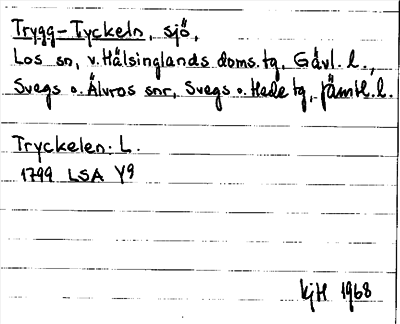 Trygg-Tyckeln, sjö,
Los sn, v. Hälsinglands doms. tg, Gävl. l.,
Svegs o. Älvros snr, Svegs o. Hede tg, Jämtl. l.
Tryckelen. L.
1799 LSA Y9
KjH 1968